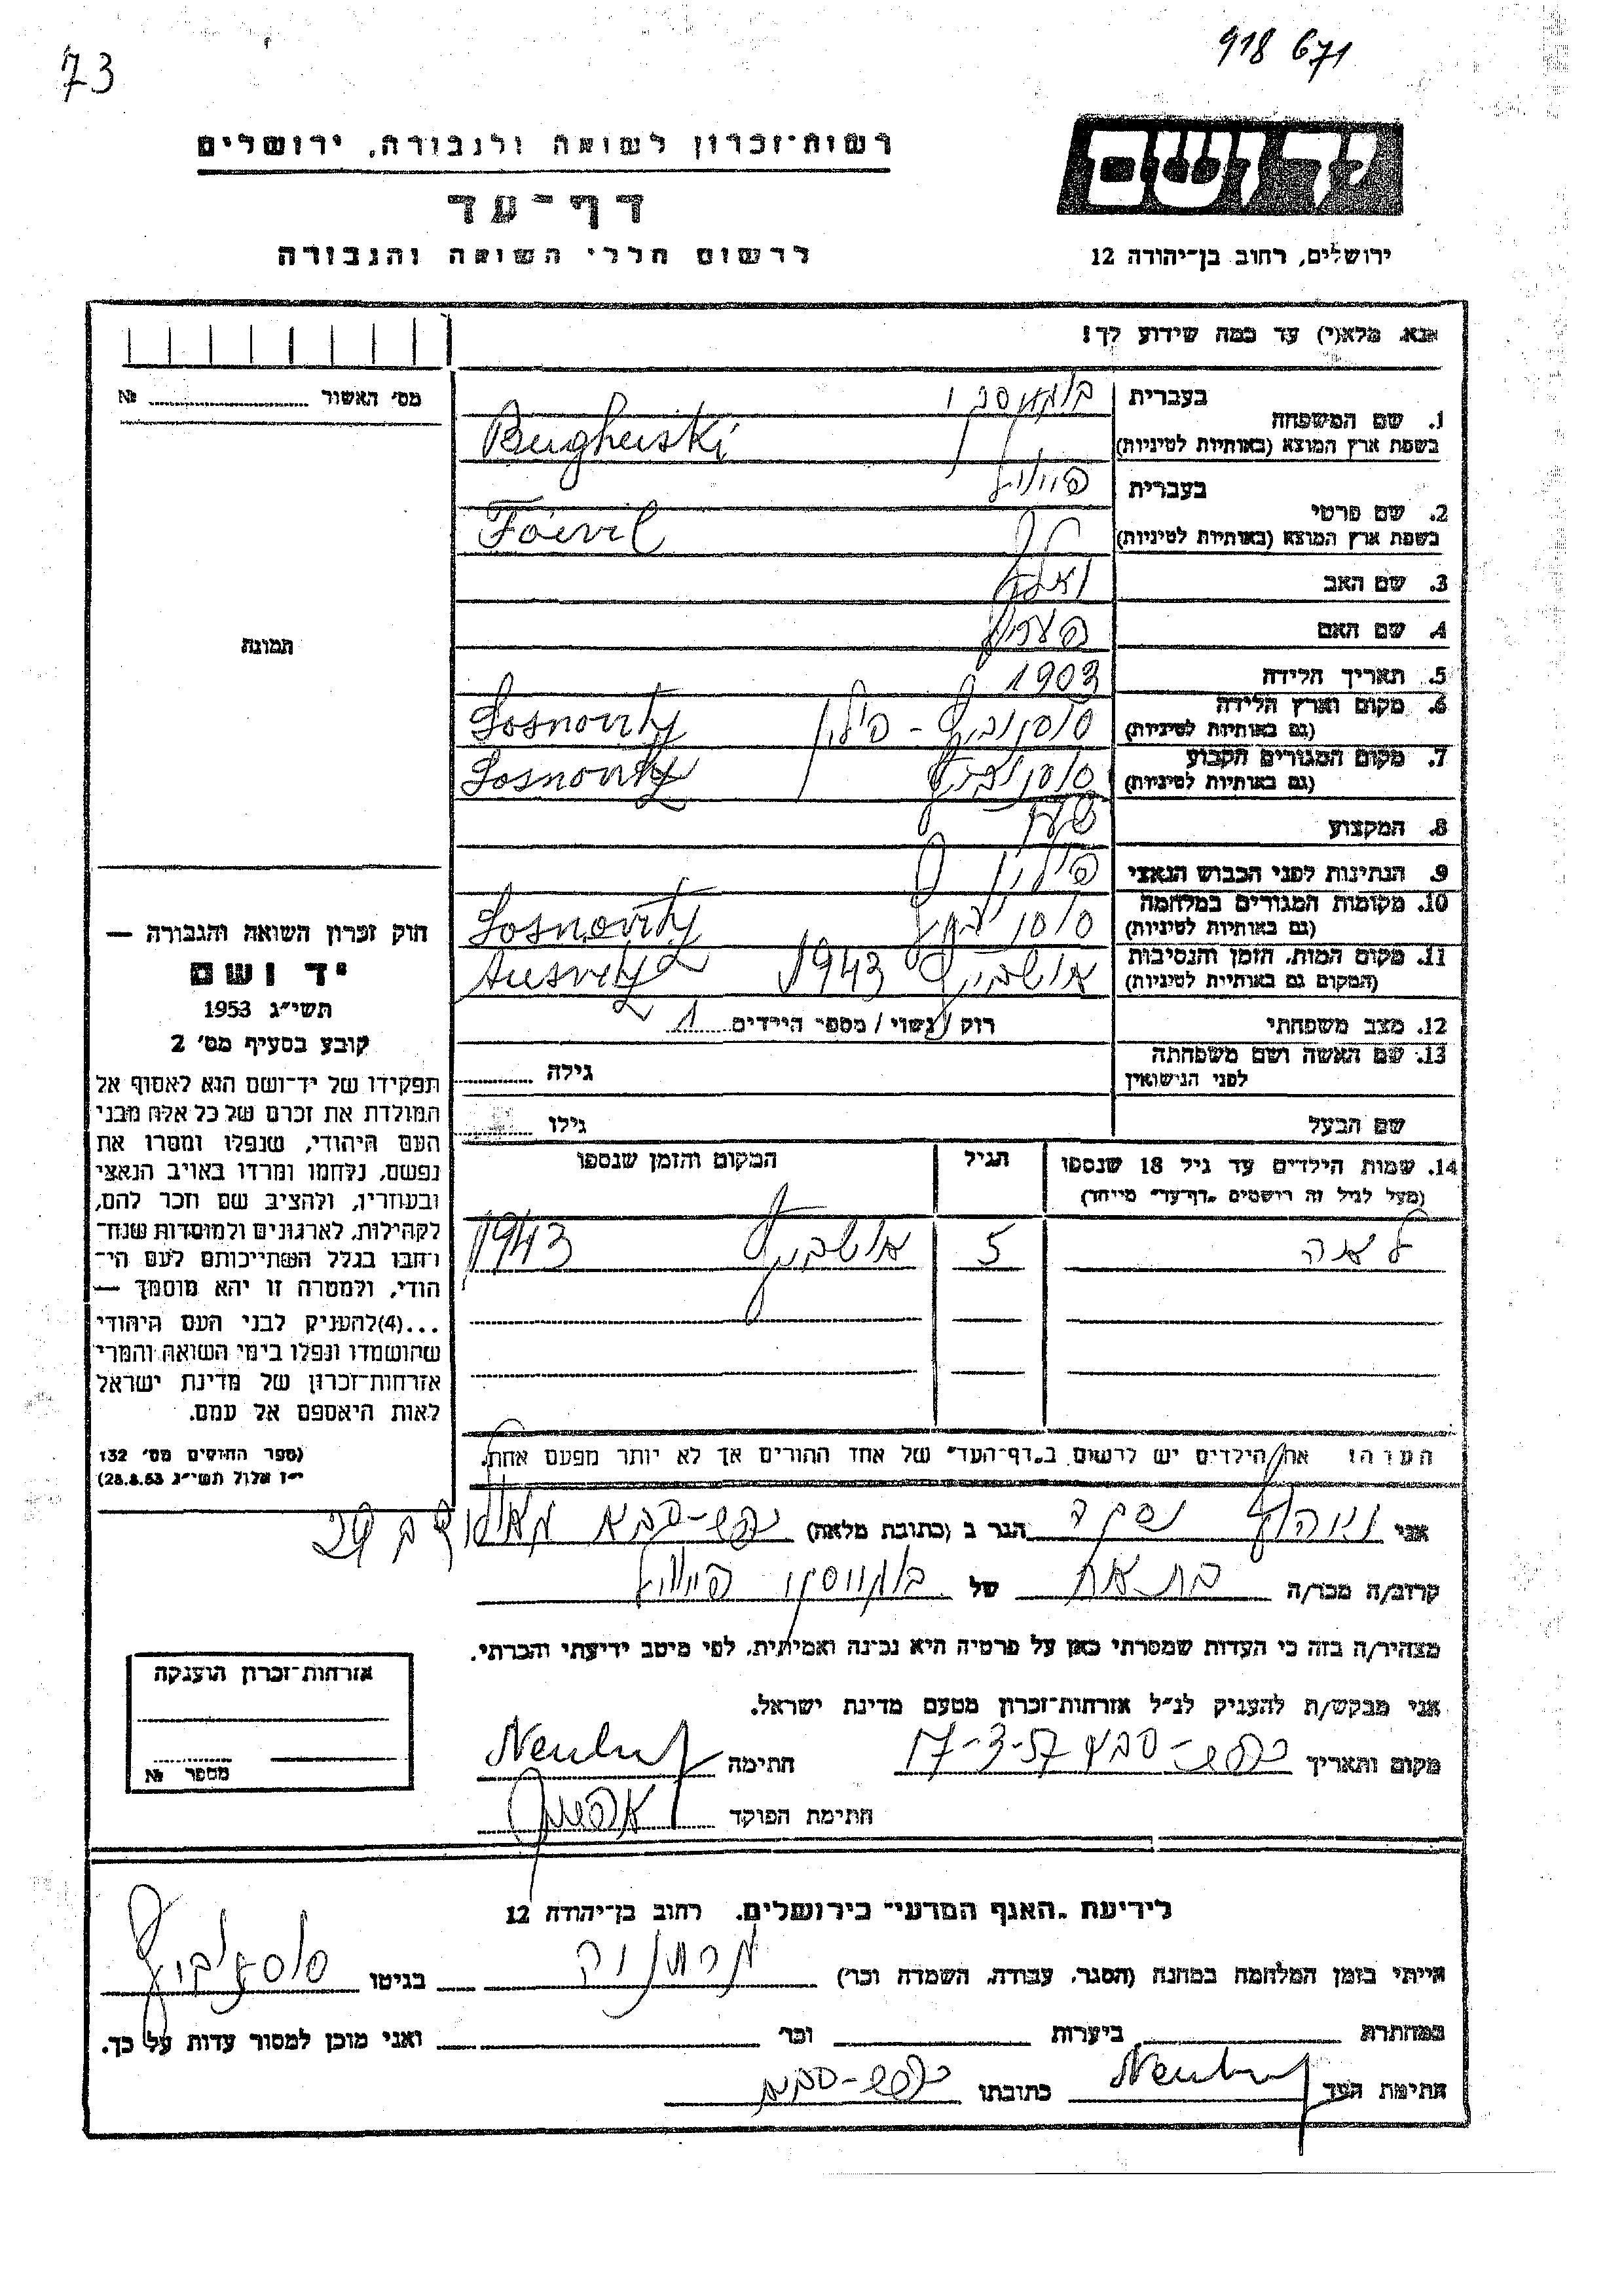 73
918 671
רשות־זכרון לשואה ולגבורה, ירושלים
דף־עד
לרשום חללי השואה והגבורה
יד ושם
ירושלים, רחוב בן־יהודה 12
אנא, מלא(י) עד כמה שידוע לך!
מס׳ האשור № ........
תמונה
1. שם המשפחה
בעברית
בשפת ארץ המוצא (באותיות לטיניות)
2. שם פרטי
בעברית פייוויל
בשפת ארץ המוצא (באותיות לטיניות) Faevil
3. שם האב
4. שם האם
5. תאריך הלידה 1903
6. מקום וארץ הלידה סוסנוביץ - פולין Sosnovitz
(גם באותיות לטיניות)
7. מקום המגורים הקבוע סוסנוביץ Sosnovitz
(גם באותיות לטיניות)
8. המקצוע
9. הנתינות לפני הכבוש הנאצי פולין
10. מקומות המגורים במלחמה סוסנוביץ Sosnovitz
(גם באותיות לטיניות)
11. מקום המות, הזמן והנסיבות אושביץ 1943 Ausvitz
(המקום גם באותיות לטיניות)
12. מצב משפחתי רוק / נשוי / מספר הילדים 1
13. שם האשה ושם משפחתה גילה
לפני הנישואין
שם הבעל גילו
14. שמות הילדים עד גיל 18 שנספו הגיל המקום והזמן שנספו
(מעל לגיל זה רושמים „דף־עד״ מייחד)
לאה 5 אושביץ 1943
הערה: את הילדים יש לרשום ב„דף־העד״ של אחד ההורים אך לא יותר מפעם אחת.
חוק זכרון השואה והגבורה —
יד ושם
תשי״ג 1953
קובע בסעיף מס׳ 2
תפקידו של יד־ושם הוא לאסוף אל
המולדת את זכרם של כל אלה מבני
העם היהודי, שנפלו ומסרו את
נפשם, נלחמו ומרדו באויב הנאצי
ובעוזריו, ולהציב שם וזכר להם,
לקהילות, לארגונים ולמוסדות שנח־
רבו בגלל השתייכותם לעם הי־
הודי, ולמטרה זו יהא מוסמך —
...(4) להעניק לבני העם היהודי
שהושמדו ונפלו בימי השואה והמרי
אזרחות־זכרון של מדינת ישראל
לאות היאספם אל עמם.
(ספר החוקים מס׳ 132
י״ז אלול תשי״ג 28.8.53)
אני הגר ב (כתובת מלאה) כפר-סבא
קרוב/ה מכר/ה בת אח של פייוויל
מצהיר/ה בזה כי העדות שמסרתי כאן על פרטיה היא נכונה ואמיתית, לפי מיטב ידיעתי והכרתי.
אני מבקש/ת להעניק לנ״ל אזרחות־זכרון מטעם מדינת ישראל.
מקום ותאריך כפר-סבא 17-3-57 חתימה
חתימת הפוקד
אזרחות־זכרון הוענקה
מספר №
לידיעת „האגף המדעי״ בירושלים, רחוב בן־יהודה 12
הייתי בזמן המלחמה במחנה (הסגר, עבודה, השמדה וכר׳) בגיטו
במחתרת ביערות וכר׳ ואני מוכן למסור עדות על כך.
חתימת העד כתובתו כפר-סבא